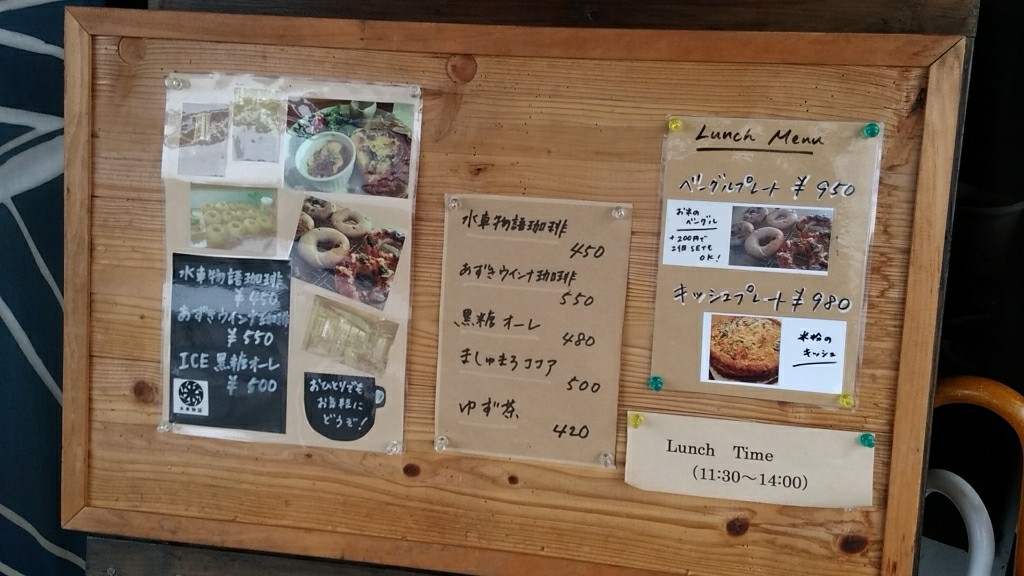 水車物語珈琲
¥450
あずきウインナ珈琲
¥550
ICE 黒糖オーレ
¥500
水車物語
おひとりでも
お気軽に
どうぞ!
水車物語珈琲
450
あずきウインナ珈琲
550
黒糖オーレ
480
ましゅまろココア
500
ゆず茶
420
Lunch Menu
ベーグルプレート ¥950
お米の
ベーグル
+200円で
2個SETも
OK!
キッシュプレート ¥980
米粉の
キッシュ
Lunch Time
(11:30～14:00)